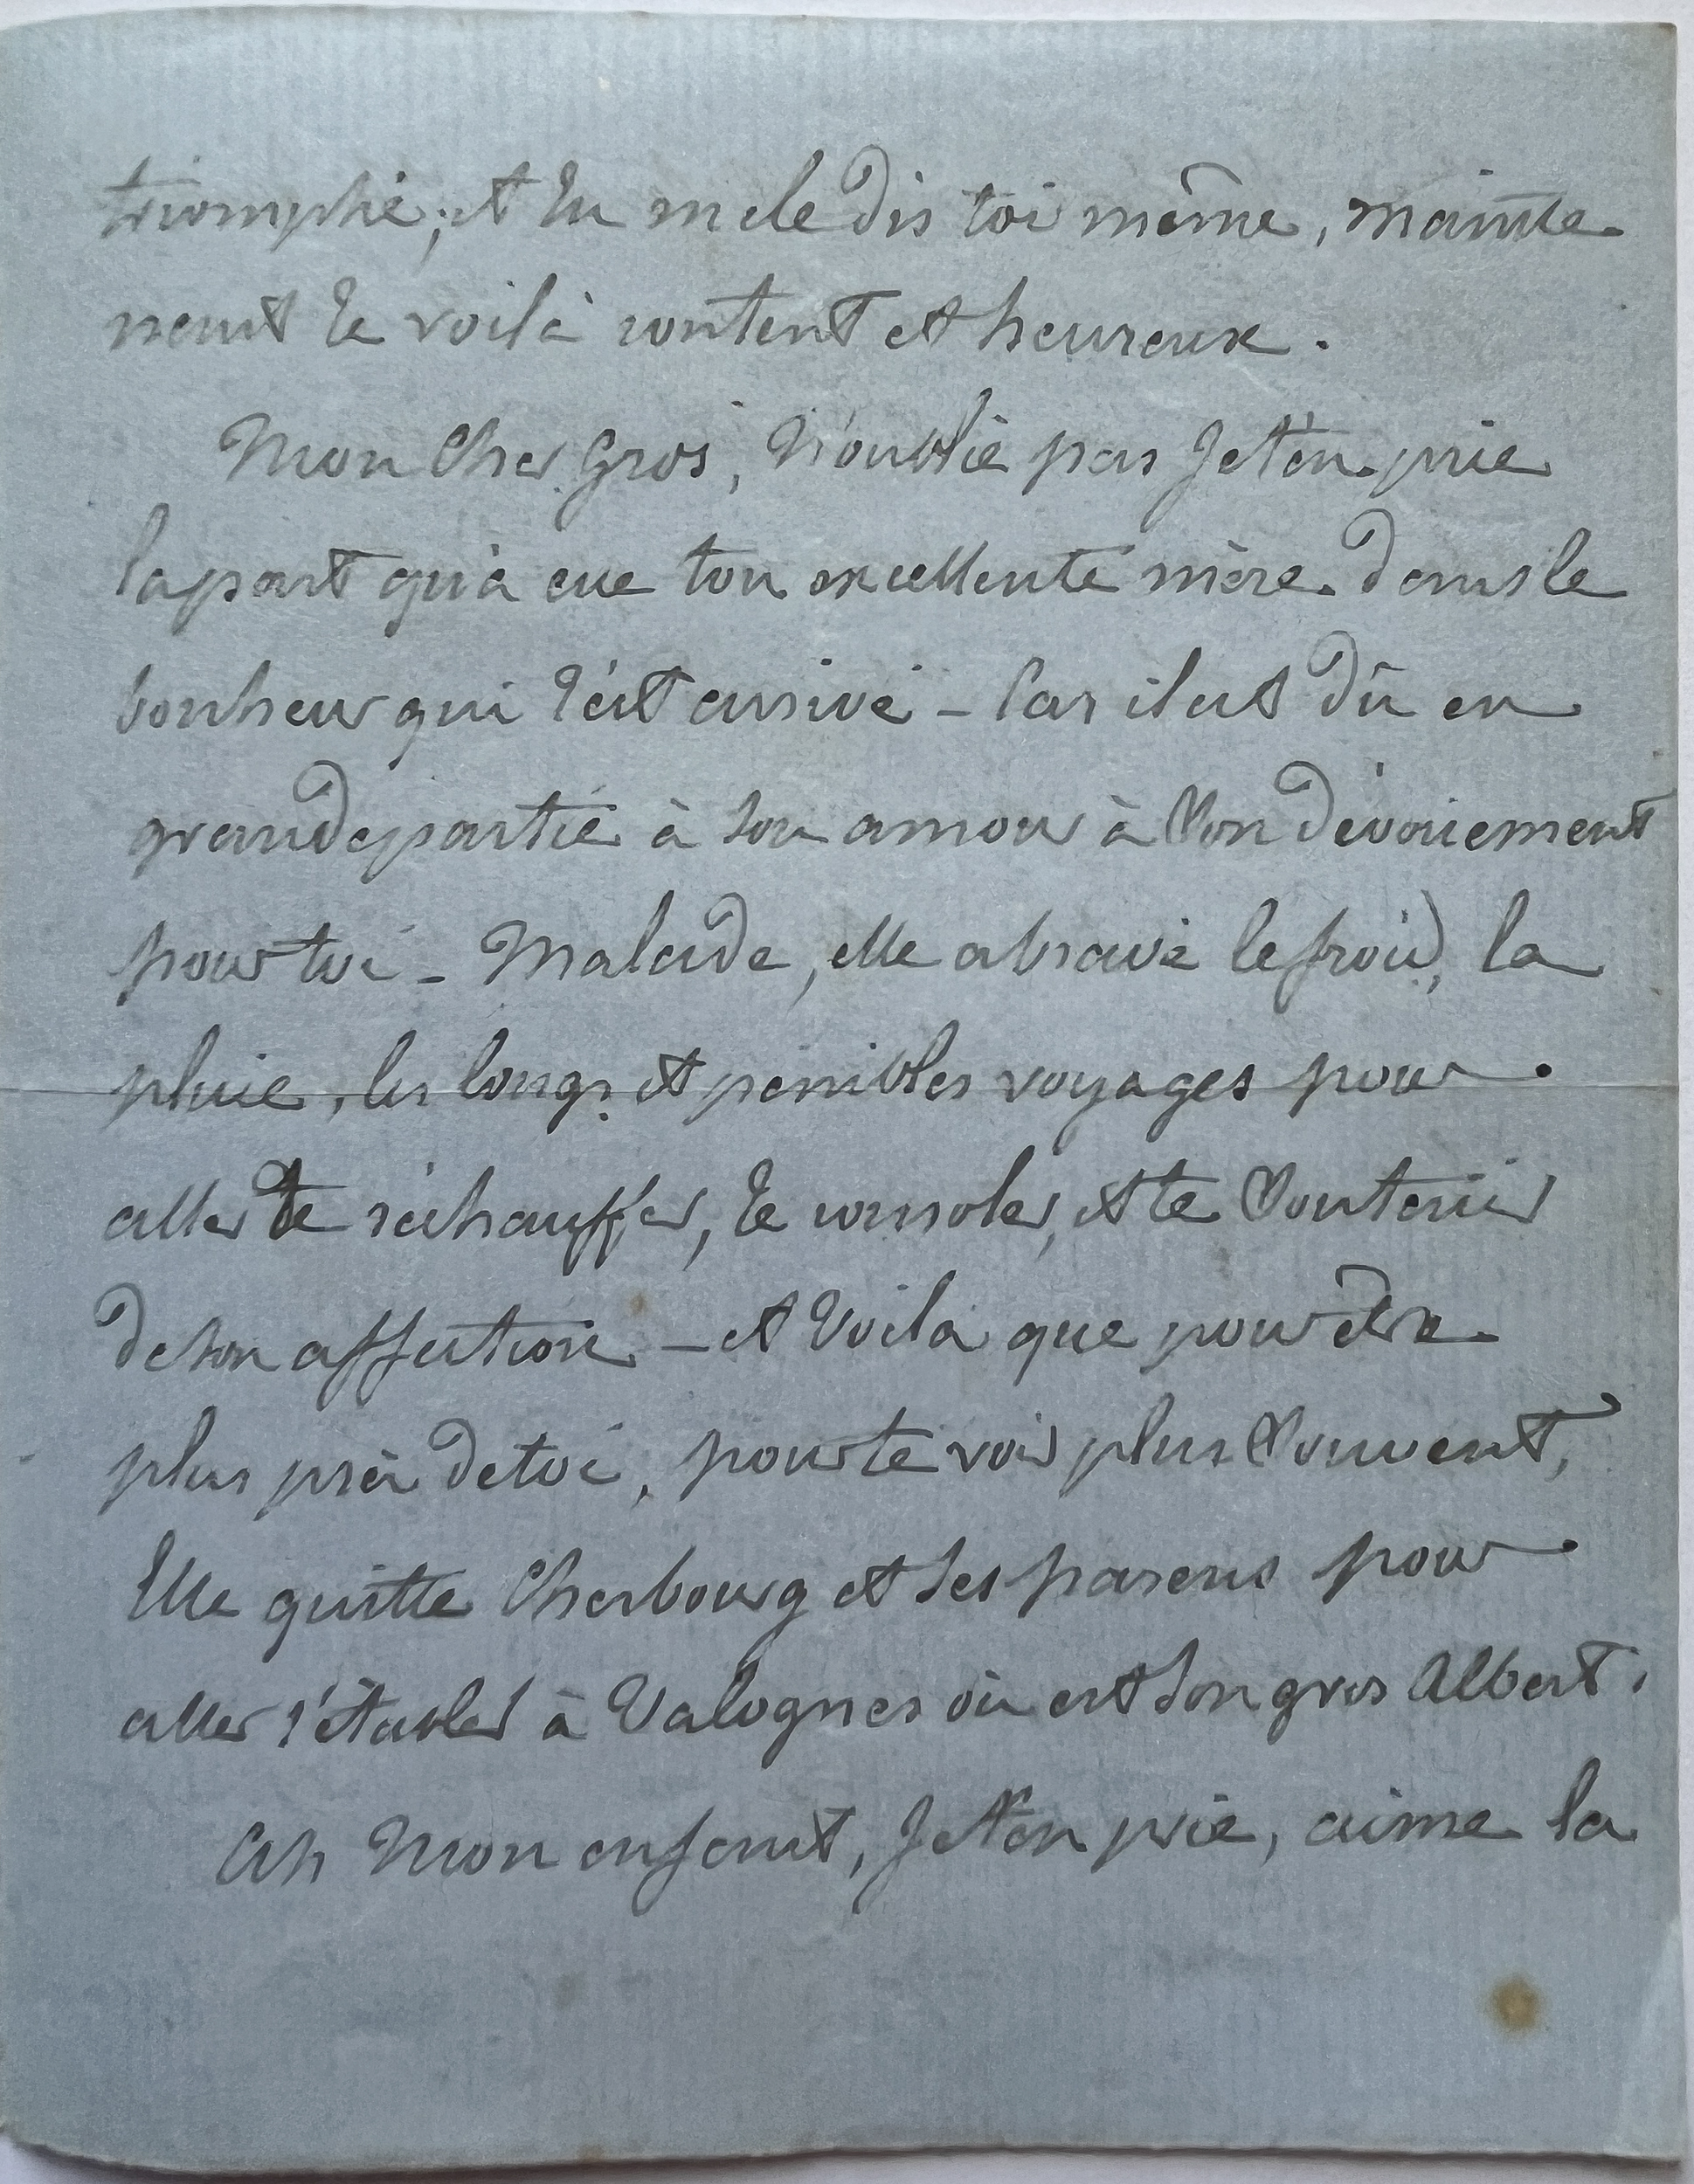 triomphé; et tu me le dis toi même, mainte
nant te voilà content et heureux.
Mon Cher Gros, N'oublie pas Je t'en prie
la part qu'a eue ton excellente mère dans le
bonheur qui t'est arrivé – Car il est dû en
grande partie à son amour à Son dévouement
pour toi – Malade, elle a bravé le froid, la
pluie, les longs et penibles voyages pour
aller te réchauffer, te consoler, et te Soutenir
de son affection – et Voilà que pour être
plus près de toi, pour te voir plus Souvent,
Elle quitte Cherbourg et ses parens pour
aller s'établir à Valognes où est son gros Albert.
Ah Mon enfant, Je t'en prie, aime la